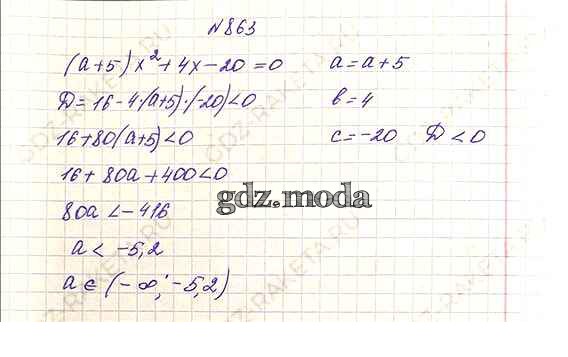 N863
(a+5)x²+4x-20=0 a=a+5
D=16-4·(a+5)·(-20)<0 b=4
16+80(a+5)<0 c=-20 D<0
16+80a+400<0
gdz.moda
80a<-416
a<-5,2
a∈(-∞;-5,2)
GDZ-RAKETA.RU